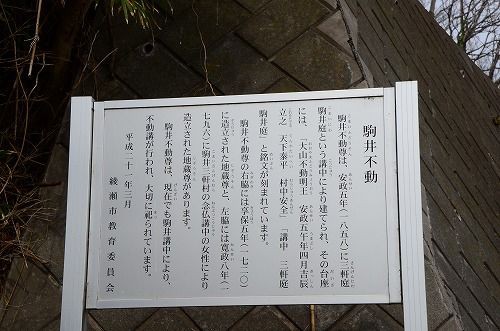 駒井不動
駒井不動尊は、安政五年(一八五八)に三軒庭
駒井庭という講中により建てられ、その台座
には、「大山不動明王 安政五午年四月吉辰
立之 天下泰平 村中安全」「講中 三軒庭
駒井庭」と銘文が刻まれています。
駒井不動尊の右脇には享保五年(一七二〇)
に造立された地蔵尊と、左脇には寛政八年(一
七九六)に駒井三軒村の念仏講中の女性により
造立された地蔵尊があります。
駒井不動尊は、現在でも駒井講中により、
不動講が行われ、大切に祀られています。
平成二十一年三月
綾瀬市教育委員会